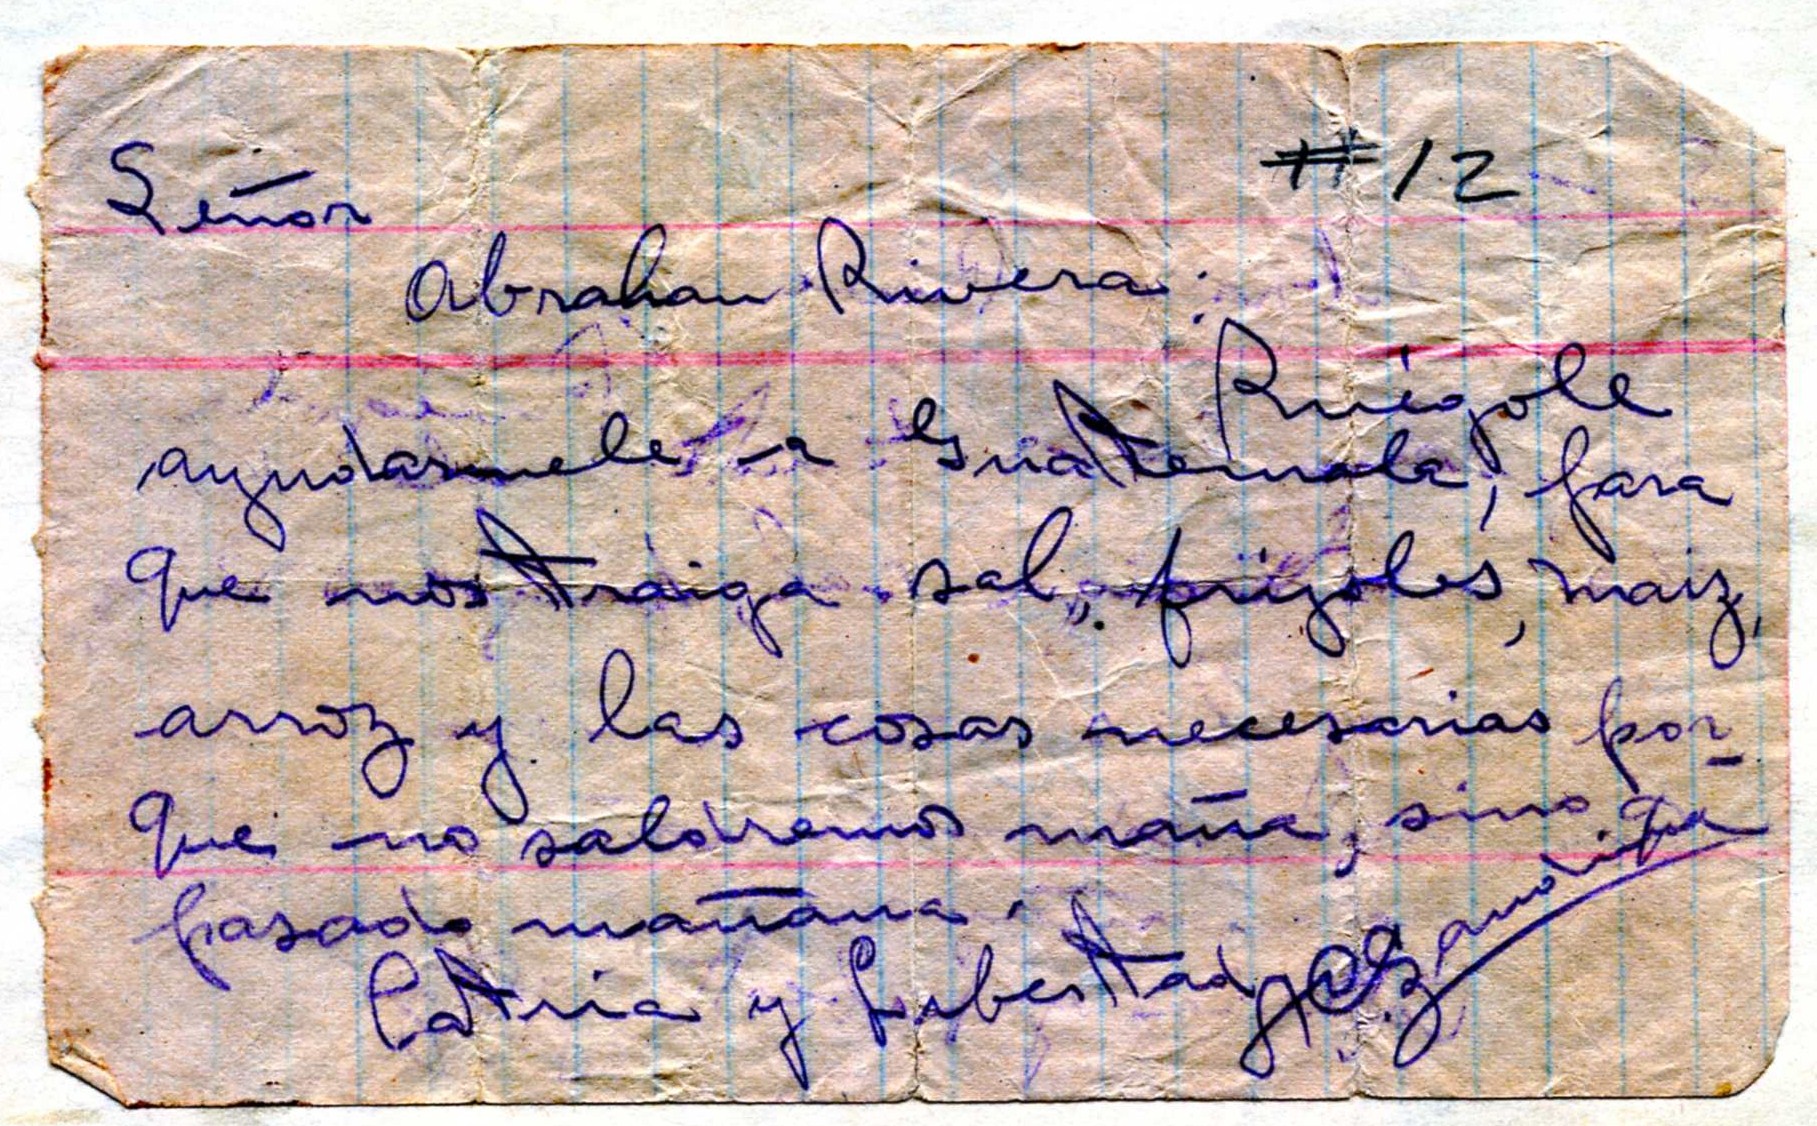 #12
Señor
Abraham Rivera:
Ruégole
ayudarmele a Guatemala, para
que nos traiga sal, frijoles, maiz,
arroz y las cosas necesarias por-
que no saldremos maña, sino que
pasado mañana.
Patria y Libertad
A C Sandino